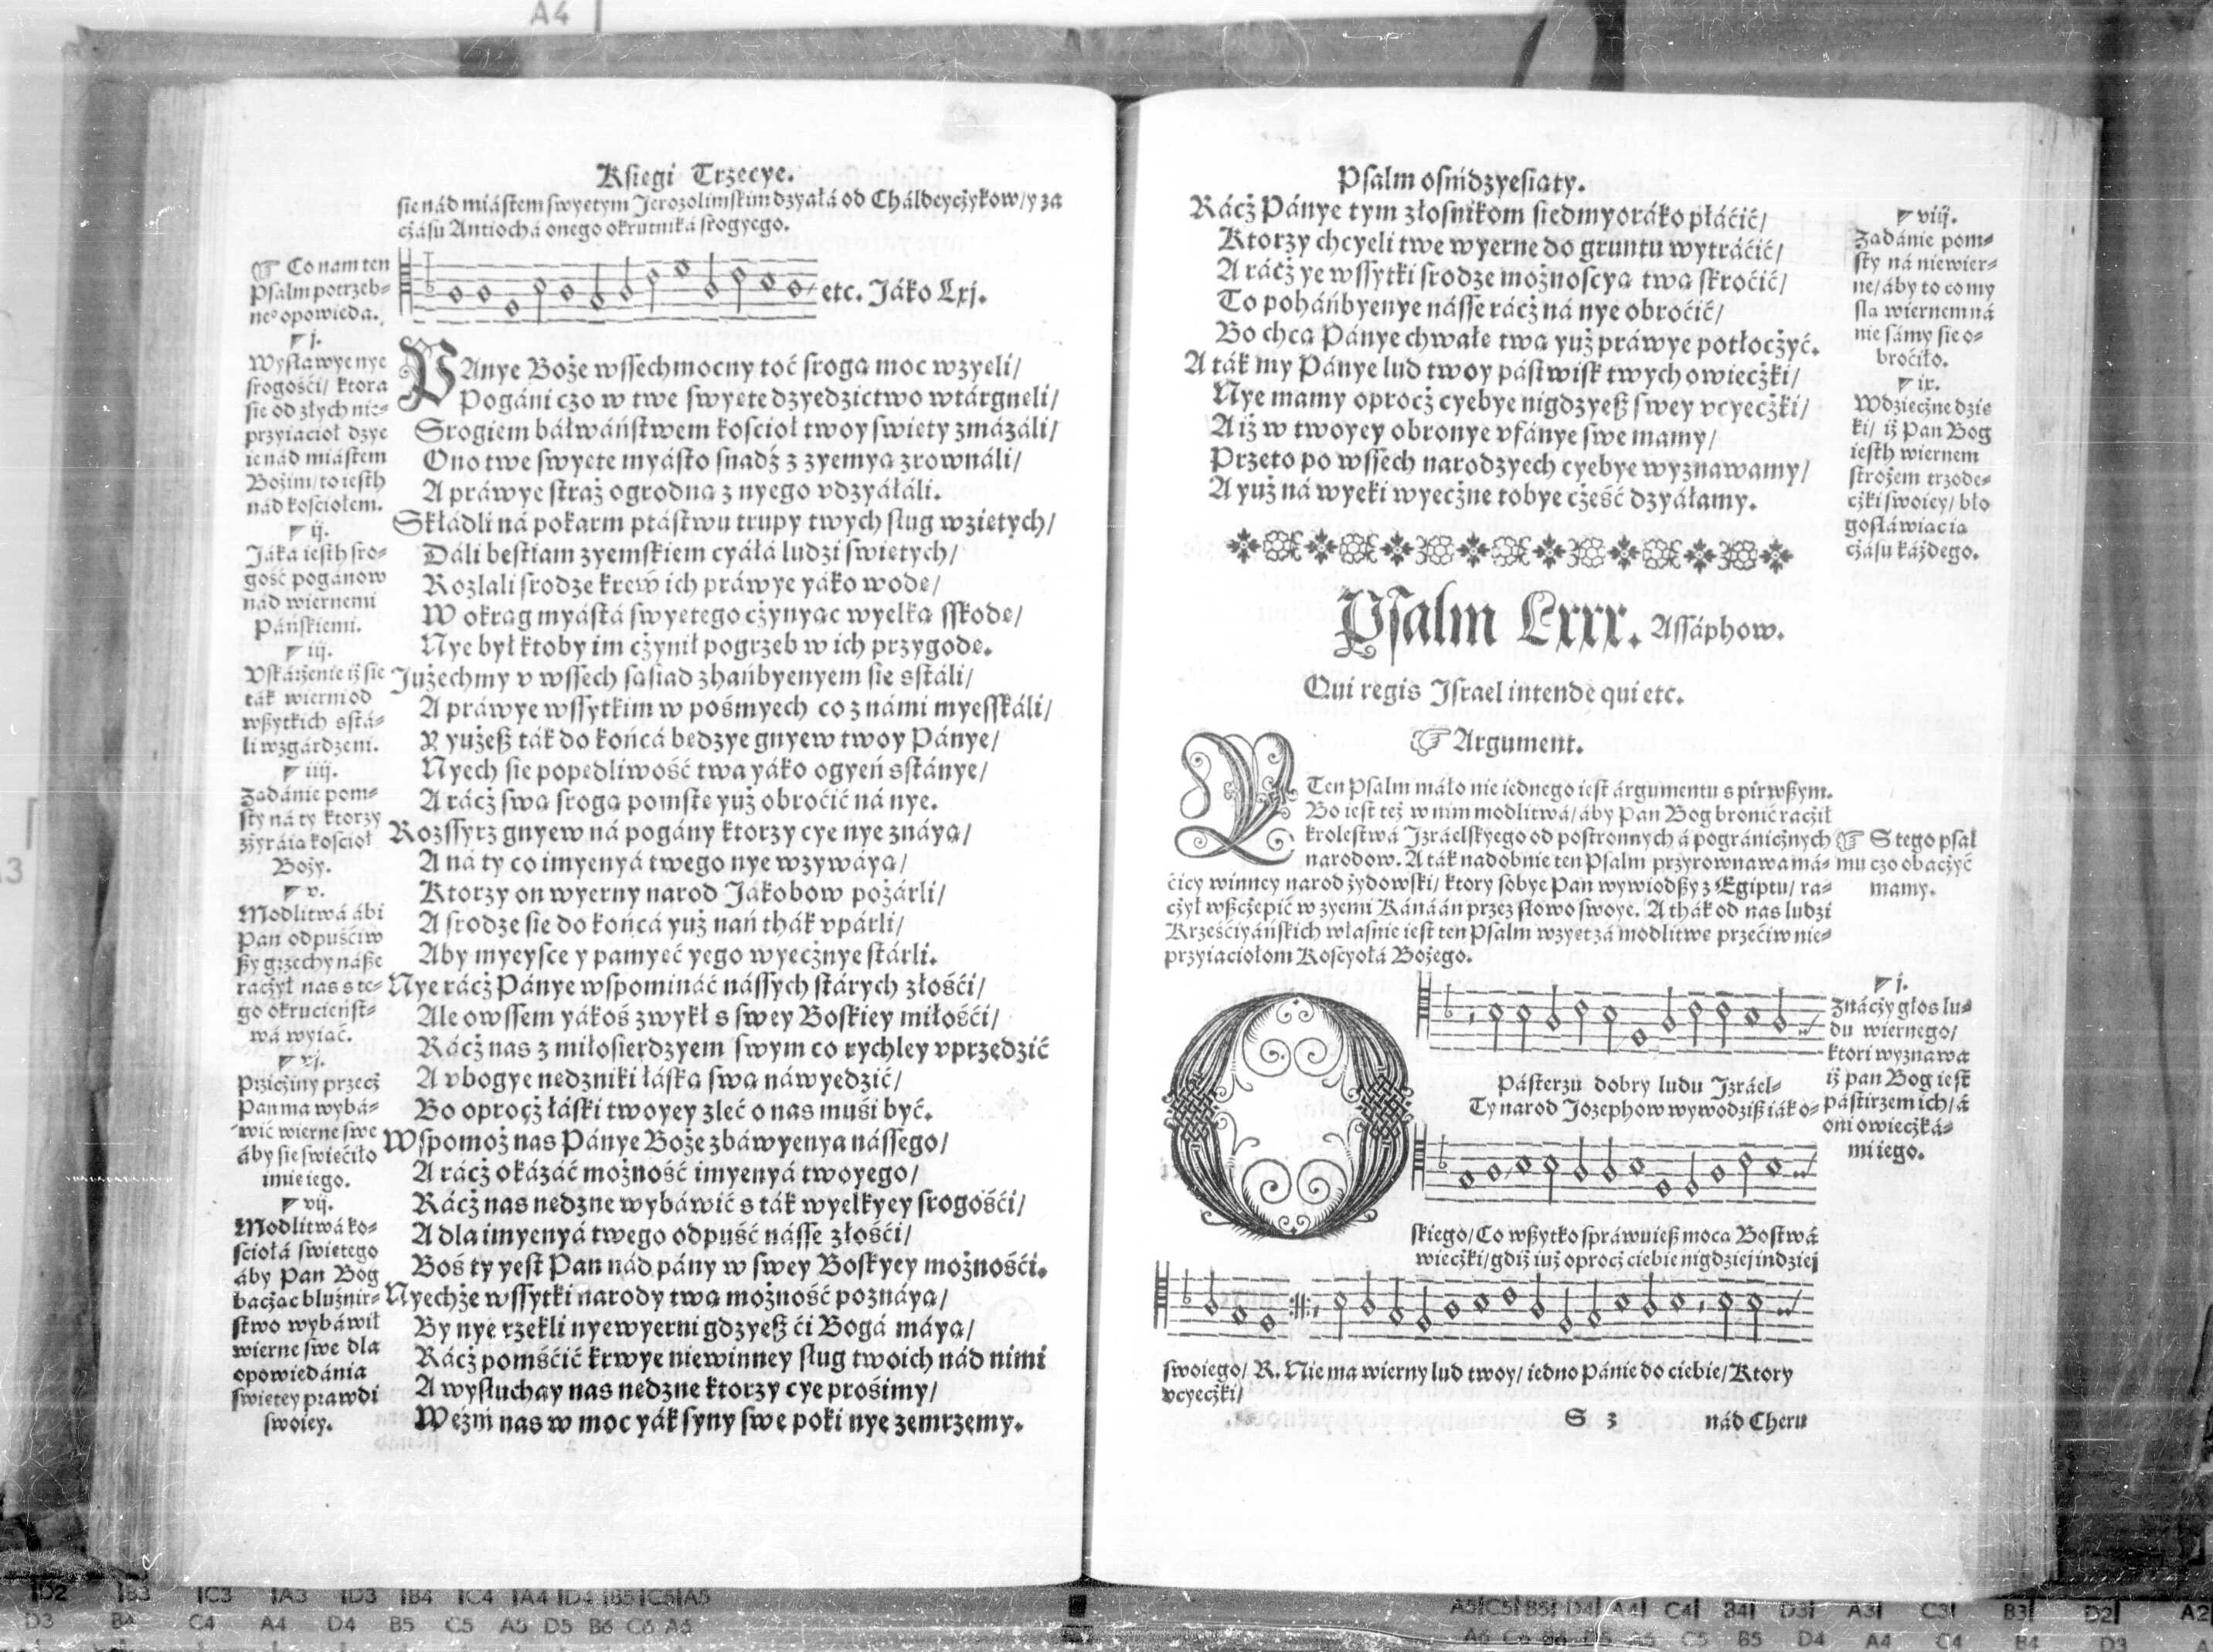 A4
Ksiegi Trzecye.
sie nád miástem swyetym Jerozolimskim dzyałá od Cháldeyczykow/ y zá
czásu Antiochá onego okrutniká srogyego.
☞ Co nam ten
Psalm potrzeb-
ne° opowieda.
etc. Jáko Lxj.
j.
Wysławye nye
srogości/ ktora
sie od złych nie-
przyiacioł dzye
ie nád miástem
Bożim/ to iesth
nád kosciołem.
ij.
Jáka iesth sro-
gość pogánow
nád wiernemi
Páńskiemi.
iij.
Vskárżenie iż sie
ták wierni od
wßytkich sstá-
li wzgárdzeni.
iiij.
Żadánie pom-
sty ná ty ktorzy
zżyráia kościoł
Boży.
v.
Modlitwá ábi
Pan odpuściw
ßy grzechy náße
raczył nas s te-
go okrucieńst-
wá wyiać.
vj.
Prziczyny przecz
Pan ma wybá-
wić wierne swe
áby sie swieciło
imie iego.
vij.
Modlitwá ko-
sciołá swietego
áby Pan Bog
baczac bluźnir-
stwo wybáwił
wierne swe dla
opowiedánia
swietey prawdi
swoiey.
PAnye Boże wssechmocny toć sroga moc wzyeli/
Pogáni czo w twe swyete dzyedzictwo wtárgneli/
Srogiem báłwáństwem kościoł twoy swiety zmázáli/
Ono twe swyete myásto snadź z zyemya zrownáli/
A práwye straż ogrodna z nyego vdzyáłáli.
Skłádli ná pokarm ptástwu trupy twych sług wzietych/
Dáli bestiam zyemskiem cyáłá ludzi swietych/
Rozlali srodze krew ich práwye yáko wode/
W okrag myástá swyetego czynyac wyelka sskode/
Nye był ktoby im czynił pogrzeb w ich przygode.
Jużechmy v wssech sasiad zhańbyenyem sie sstáli/
A práwye wssytkim w pośmyech co z námi myesskáli/
Y yużeß ták do końcá bedzye gnyew twoy Pánye/
Nyech sie popedliwość twa yáko ogyeń sstánye/
A rácż swa sroga pomste yuż obroćić ná nye.
Rozssyrz gnyew ná pogány ktorzy cye nye znáya/
A ná ty co imyenyá twego nye wzywáya/
Ktorzy on wyerny narod Jakobow pożárli/
A srodze sie do końcá yuż nań thák vpárli/
Aby myeysce y pamyeć yego wyecżnye stárli.
Nye rácż Pánye wspomináć nássych stárych złości/
Ale owssem yákoś zwykł s swey Boskiey miłości/
Rácż nas z miłosierdzyem swym co rychley vprzedzić
A vbogye nedzniki łáska swa náwyedzić/
Bo oprocż łáski twoyey zleć o nas muśi być.
Wspomoż nas Pánye Boże zbáwyenya nássego/
A rácż okázáć możność imyenyá twoyego/
Rácż nas nedzne wybáwić s ták wyelkyey srogości/
A dla imyenyá twego odpuść násse złości/
Boś ty yest Pan nád pány w swey Boskyey możności.
Nyechże wssytki narody twa możność poznáya/
By nye rzekli nyewyerni gdzyeß ći Bogá máya/
Rácż pomśćić krwye niewinney sług twoich nád nimi
A wysłuchay nas nedzne ktorzy cye prośimy/
Weźmi nas w moc yák syny swe poki nye zemrzemy.
Psalm osmdzyesiaty.
Rácż Pánye tym złosnikom siedmyoráko płáćić/
Ktorzy chcyeli twe wyerne do gruntu wytráćić/
A rácż ye wssytki srodze możnoscya twa skroćić/
To poháńbyenye násse rácż ná nye obroćić/
Bo chca Pánye chwałe twa yuż práwye potłoczyć.
A ták my Pánye lud twoy pástwisk twych owiecżki/
Nye mamy oprocż cyebye nigdzyeß swey vcyecżki/
A iż w twoyey obronye vfánye swe mamy/
Przeto po wssech narodzyech cyebye wyznawamy/
A yuż ná wyeki wyecżne tobye cżeść dzyáłamy.
viij.
Żadánie pom-
sty ná niewier-
ne/ áby to co my
sla wiernem ná
nie sámy sie o-
broćiło.
ix.
Wdziecżne dzie
ki/ iż Pan Bog
iesth wiernem
strożem trzode-
cżki swoiey/ bło
gosłáwiac ia
cżásu káżdego.
Psalm Lxxx. Assáphow.
Qui regis Israel intende qui etc.
☞ Argument.
Ten Psalm máło nie iednego iest árgumentu s pirwßym.
Bo iest też w nim modlitwá/ áby Pan Bog bronić racżił
krolestwá Izráelskyego od postronnych á pográniczných
narodow. A ták nadobnie ten Psalm przyrownawa má-
ćicy winney narod żydowski/ ktory sobye Pan wywiodßy z Egiptu/ ra-
cżył wßcżepić w zyemi Kánáán przez słowo swoye. A thák od nas ludzi
Krześćiyáńskich własnie iest ten Psalm wzyet zá modlitwe przećiw nie-
przyiaciołom Koscyołá Bożego.
☞ S tego psal
mu czo obacżyć
mamy.
j.
Znácży głos lu-
du wiernego/
ktori wyznawa
iż pan Bog iest
pástirzem ich/ á
oni owiecżká-
mi iego.
O
Pásterzu dobry ludu Izráel-
Ty narod Jozephow wywodziß iák o-
skiego/ Co wßytko spráwuieß moca Bostwá
wiecżki/ gdiż iuż oprocż ciebie nigdziej indziej
swoiego/ R. Nie ma wierny lud twoy/ iedno Pánie do ciebie/ Ktory
vcyecżki/
S 3
nád Cheru
D2 B3 C3 A3 D3 B4 C4 A4 D4 B5 C5 A5
D3 B4 C4 A4 D4 B5 C5 A5 D5 B6 C6 A6
A5 C5 B5 D4 A4 C4 B4 D3 A3 C3 B3 D2 A2
C5 B5 D4 A4 C4 B4 D3